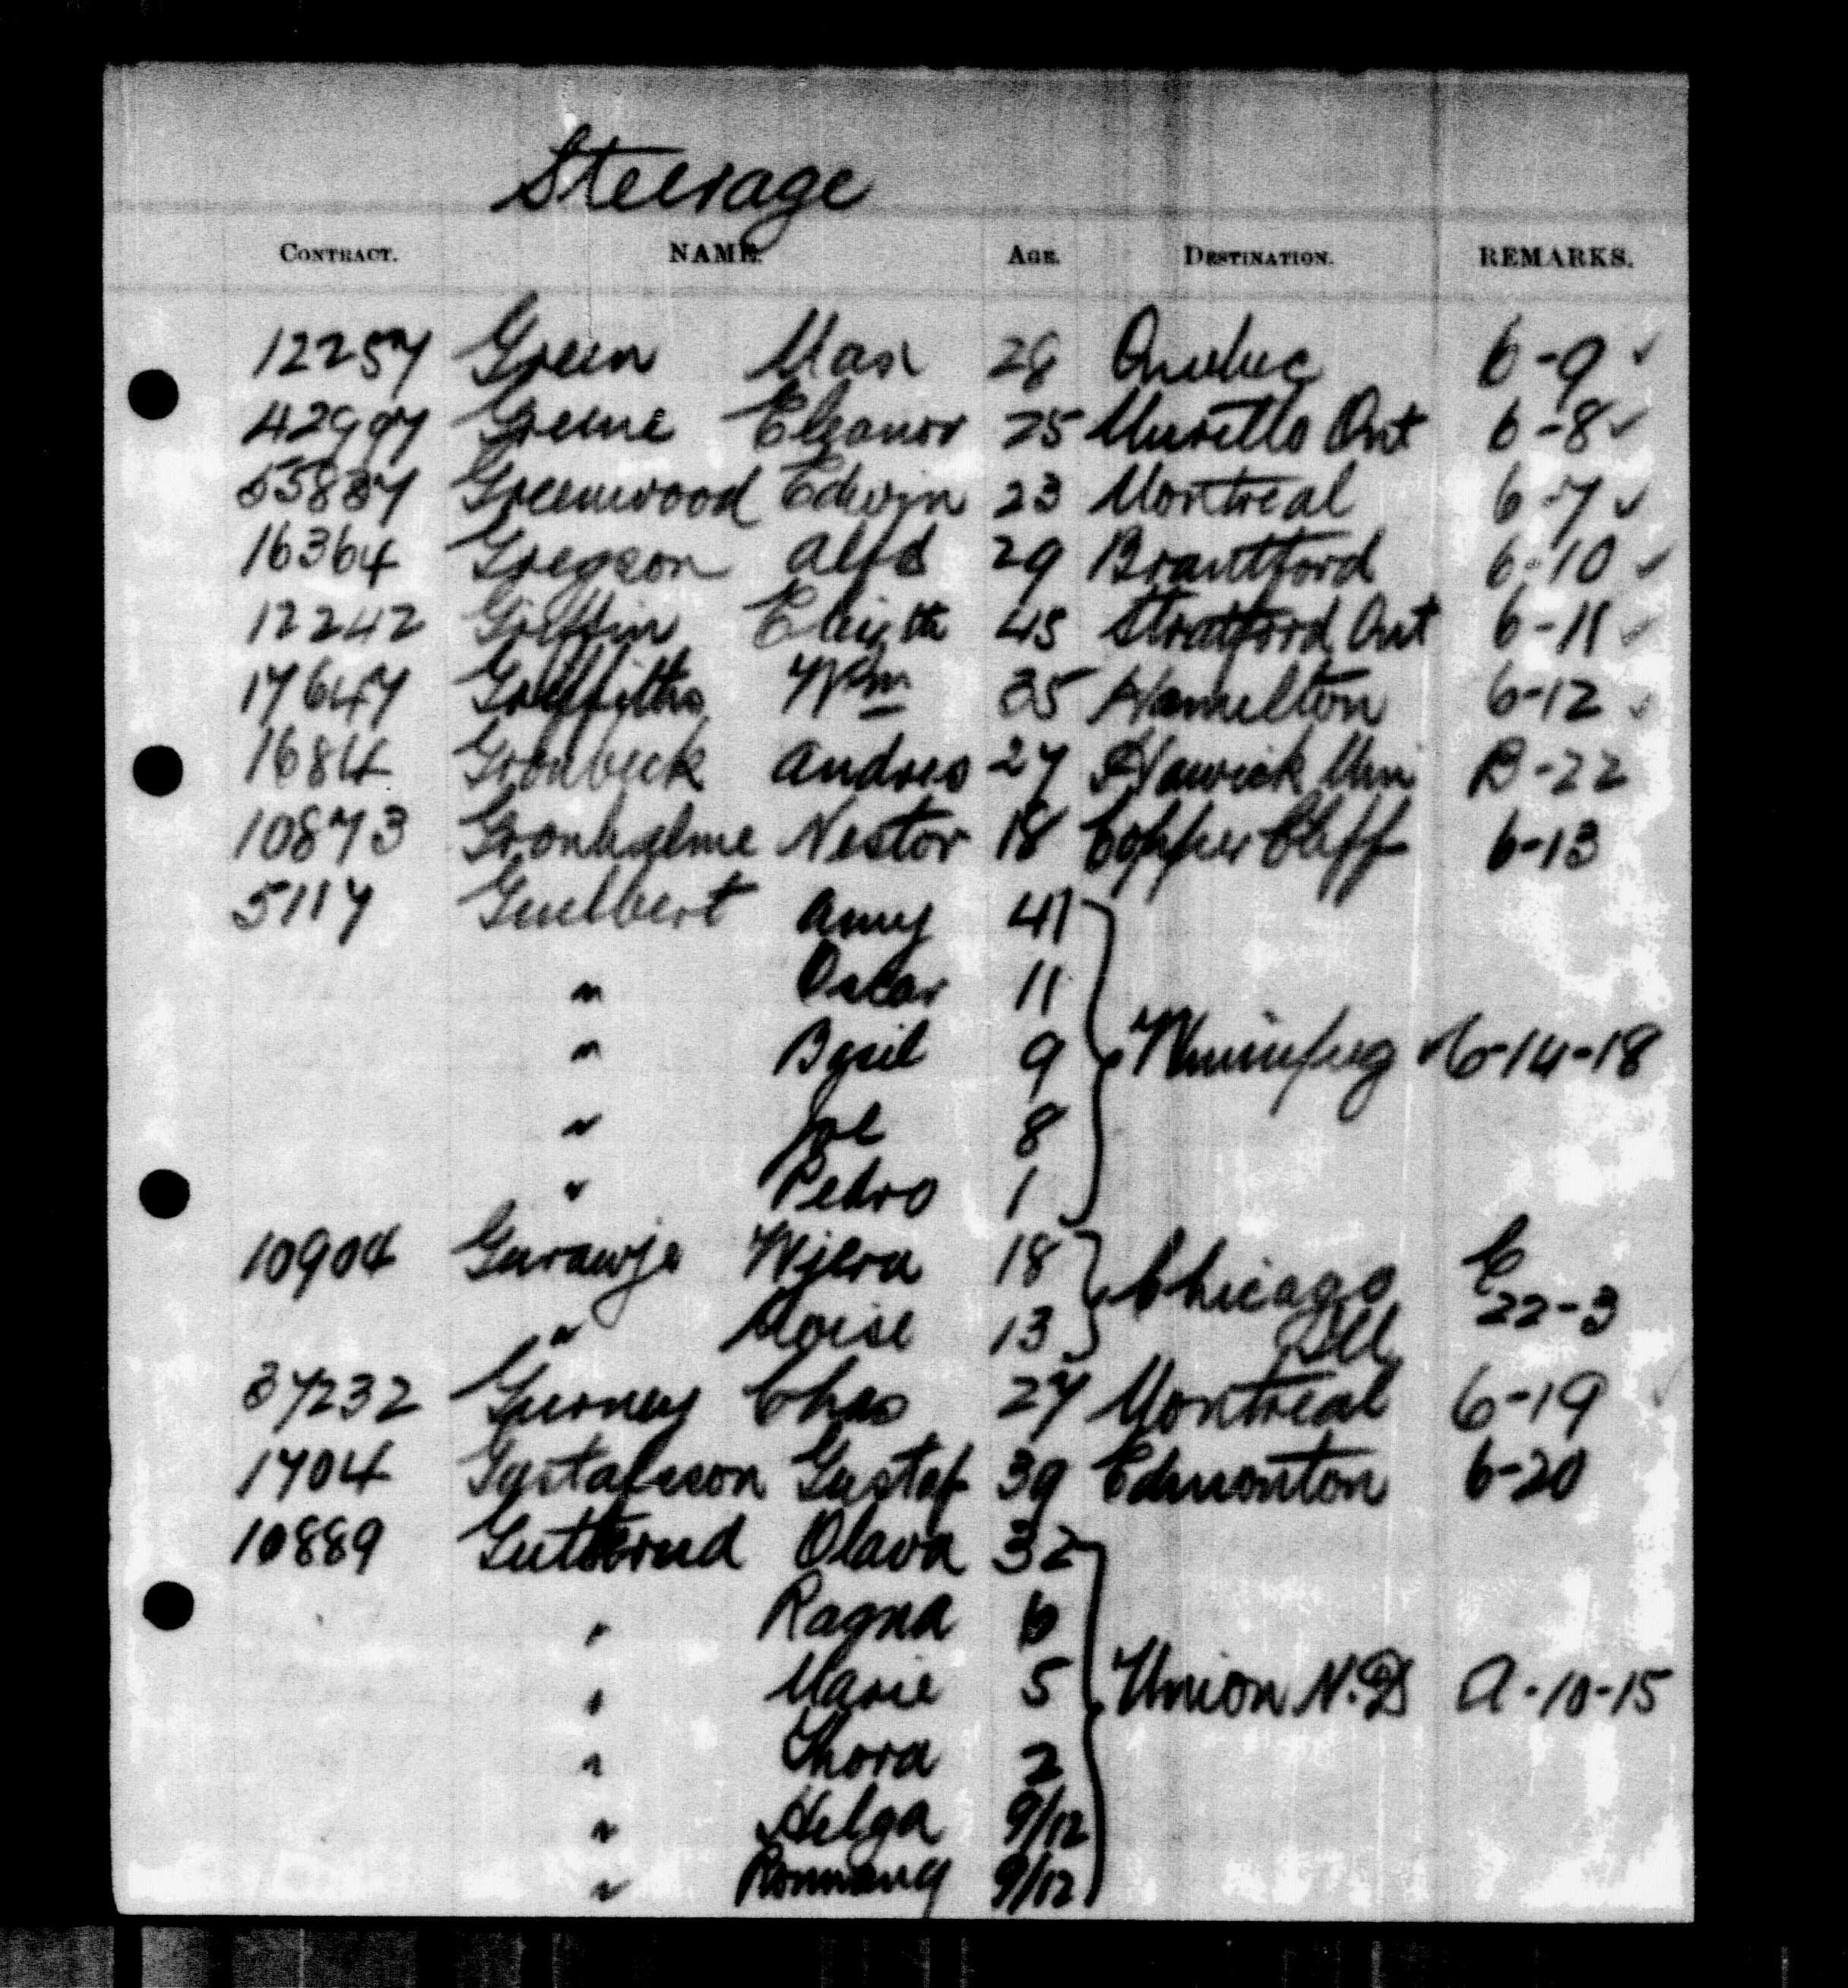 Steerage
CONTRACT. NAME. AGE. DESTINATION. REMARKS.
12257 Green Max 28 Quebec 6-9 ✓
42997 Greene Eleanor 25 Murillo Ont 6-8 ✓
55837 Greenwood Edwin 23 Montreal 6-7 ✓
16364 Gregson Alfd 29 Brantford 6-10 ✓
12242 Griffin Elizth 45 Stratford Ont 6-11 ✓
17647 Griffiths Wm 35 Hamilton 6-12 ✓
1684 Gronbeck Andres 27 Hawick Min B-22
10873 Gronholme Nestor 18 Copper Cliff 6-13
5117 Guelbert Amy 41
" Oscar 11
" Basil 9 Winnipeg 6-14-18
" Joe 8
" Pedro 1
10904 Gurawje 18 Chicago C
" 13 Ill 22-3
37232 Gurney Chas 27 Montreal 6-19
1704 Gustafsson Gustaf 39 Edmonton 6-20
10889 Olava 32
" Ragna 6
" Marie 5 Union N.D A-10-15
" Thora 2
" Helga 9/12
" 9/12